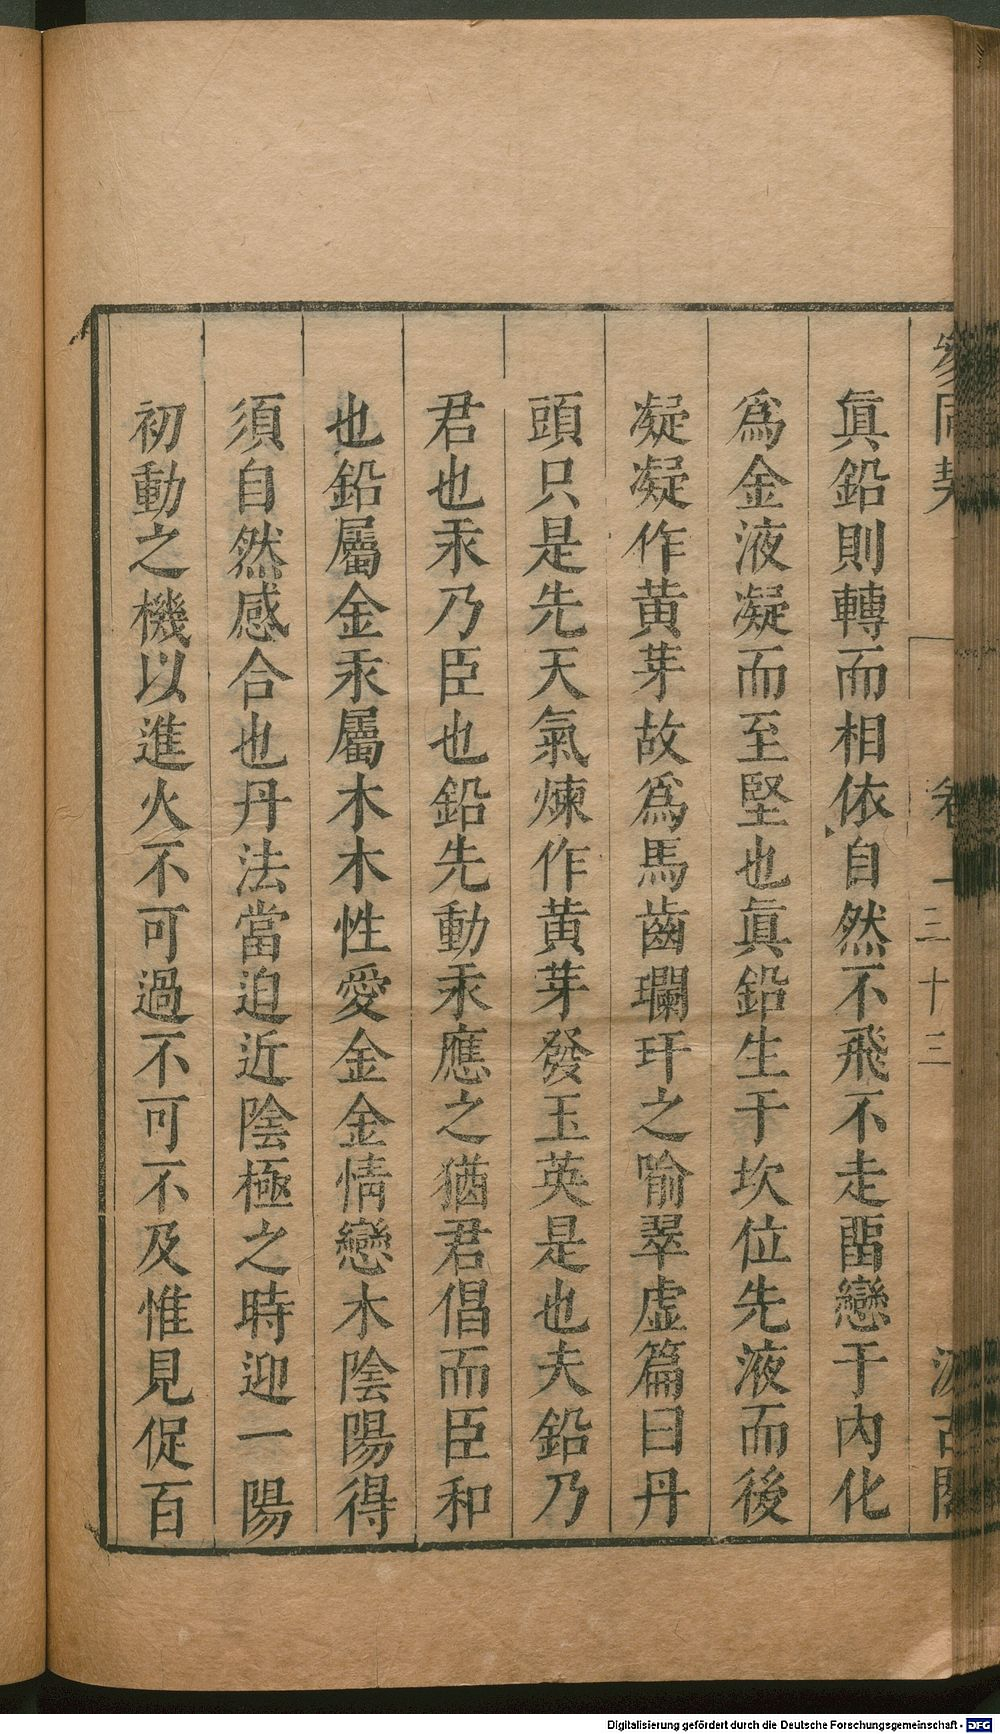 參同契 卷一 三十三 汲古閣
眞鉛則轉而相依自然不飛不走畱戀于內化
爲金液凝而至堅也眞鉛生于坎位先液而後
凝凝作黄芽故爲馬齒瓓玕之喻翠虛篇曰丹
頭只是先天氣煉作黄芽發玉英是也夫鉛乃
君也汞乃臣也鉛先動汞應之猶君倡而臣和
也鉛屬金汞屬木木性愛金金情戀木陰陽得
須自然感合也丹法當迫近陰極之時迎一陽
初動之機以進火不可過不可不及惟見促百
Digitalisierung gefördert durch die Deutsche Forschungsgemeinschaft - DFG